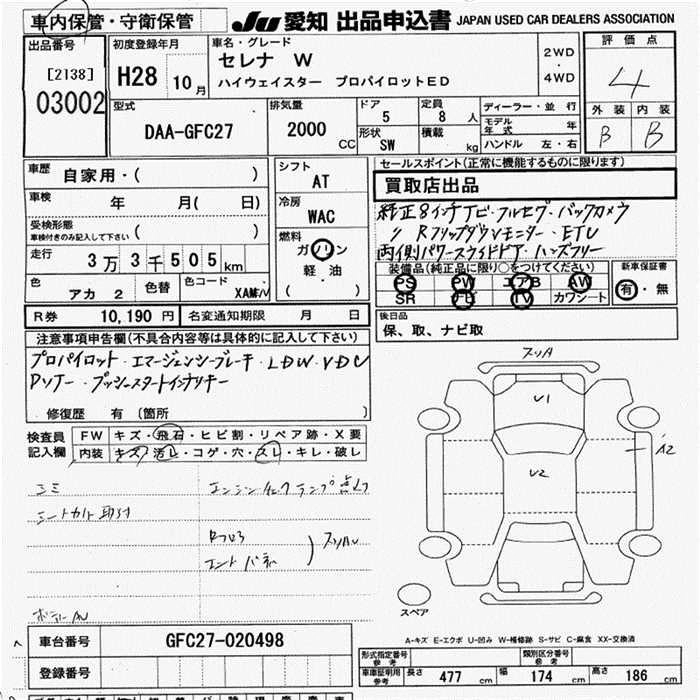 車内保管・守衛保管
JU 愛知 出品申込書 JAPAN USED CAR DEALERS ASSOCIATION
出品番号
[2138]
03002
初度登録年月
H28 10月
車名・グレード
セレナ W
ハイウェイスター プロパイロットED
2WD
・
4WD
評価点
4
外装 内装
B B
型式
DAA-GFC27
排気量
2000 CC
ドア
5
定員
8 人
形状
SW
積載
kg
ディーラー・並行
モデル年式 年
ハンドル 左・右
車歴 自家用・( )
車検 年 月( 日)
受検形態
車検付きのみ記入して下さい ( )
走行 3万3千505km
色 アカ 2
色替
色コード XAM/V
R券 10,190 円
名変通知期限 月 日
シフト
AT
冷房
WAC
燃料
ガソリン
軽・油
( )
セールスポイント(正常に機能するものに限ります)
買取店出品
純正8インチナビ・フルセグ・バックカメラ
Rフリップダウンモニター・ETC
両側パワースライドドア・ハンズフリー
装備品(純正品に限り○をつけてください)
PS PW エアB AW
SR ナビ TV カワシート
新車保証書
有・無
後日品
保、取、ナビ取
注意事項申告欄(不具合内容等は具体的に記入して下さい)
プロパイロット・エマージェンシーブレーキ・LDW・VDC
プッシュスタートインテリキー
修復歴 有 〔箇所 〕
検査員記入欄
FW キズ・飛石・ヒビ割・リペア跡・X要
内装 キズ・汚レ・コゲ・穴・スレ・キレ・破レ
エンジンチェックランプ点灯
スリA
U1
U2
A2
スペア
A-キズ E-エクボ U-凹み W-補修跡 S-サビ C-腐食 XX-交換済
車台番号 GFC27-020498
登録番号
形式指定番号
参考
類別区分番号
参考
車庫証明用
参考
長さ 477 cm 幅 174 cm 高さ 186 cm